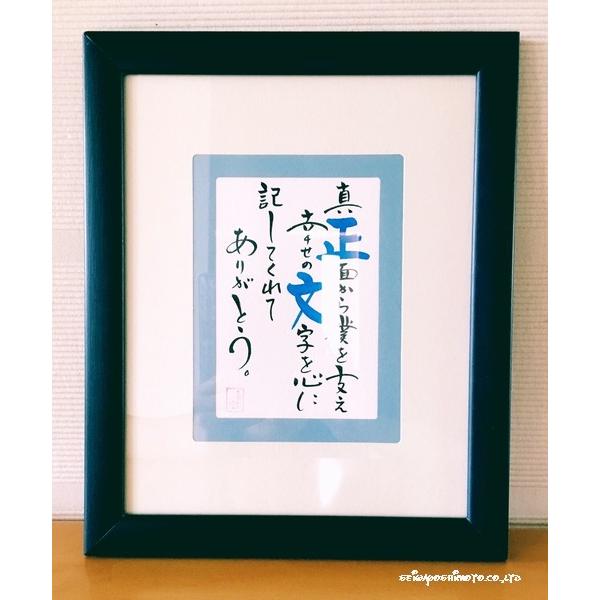 真正面から業を支え
幸せの文字を心に
記してくれて
ありがとう。
SEIGAYOSHIMOTO.CO.,LTD